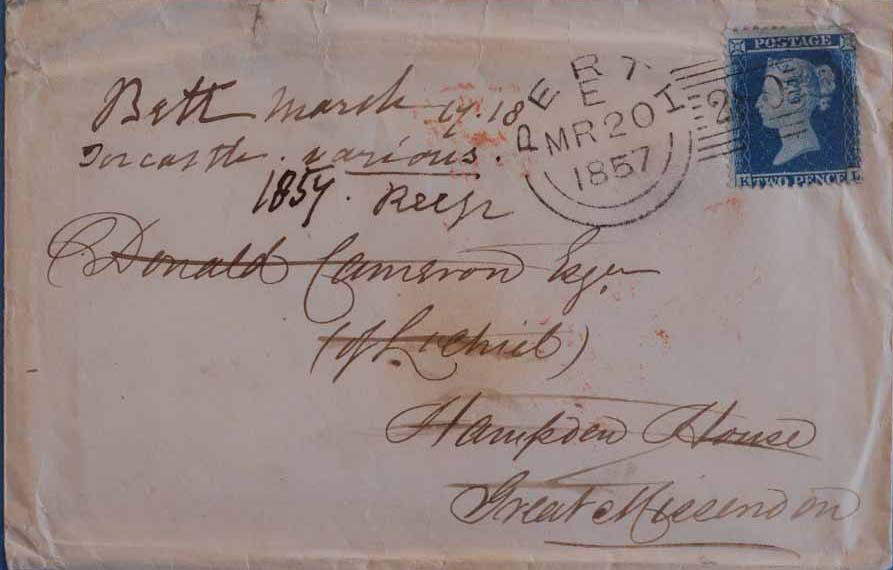 Bett March 17. 18
Torcastle. various.
1857.
Donald Cameron Esqr
(of Lochiel)
Hampden House
Great Missendon
PERT
E
MR 20
1857
POSTAGE
K TWO PENCE L